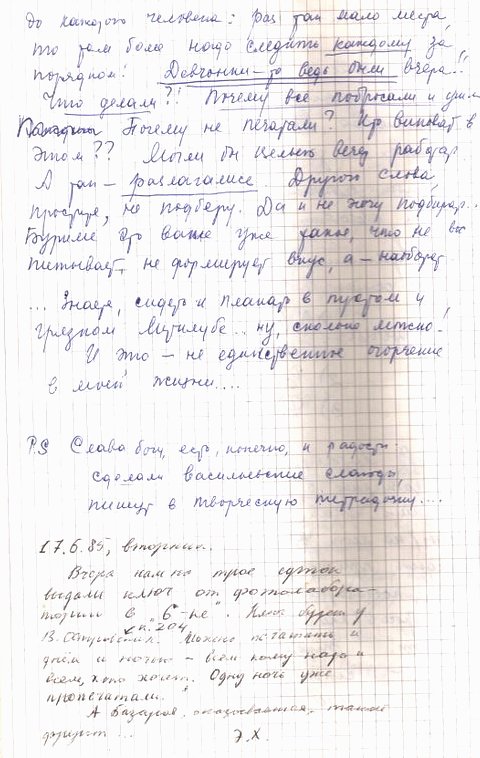 до каждого человека: раз там мало места,
то тем более надо следить каждому за
порядком! Девчонки-то ведь были вчера!!
Что делали?! Почему все побросали и ушли
Почему не печатали? Кто виноват в
этом?? Могли бы целый вечер работать
А там – разлагались. Другого слова,
простите, не подберу. Да и не хочу подбирать..
Буриме это ваше уже такое, что не вос
питывает, не формирует вкус, а – наоборот
... Знаете, сидеть и плакать в пустом и
грязном ... ну, сколько можно!
И это – не единственное огорчение
в моей жизни....
P.S Слава богу, есть, конечно, и радости:
сделали васильевские слайды,
пишут в творческую тетрадочку....
17.6.85, вторник.
Вчера нам на трое суток
выдали ключ от фотолаборa-
тории с "6-ке". Ключ будет у
В. Островский. к. 204 Можно печатать и
днём и ночью – всем кому надо и
всем, кто хочет. Одну ночь уже
пропечатали!
А Базаров, оказывается, тоже
... Э.Х.